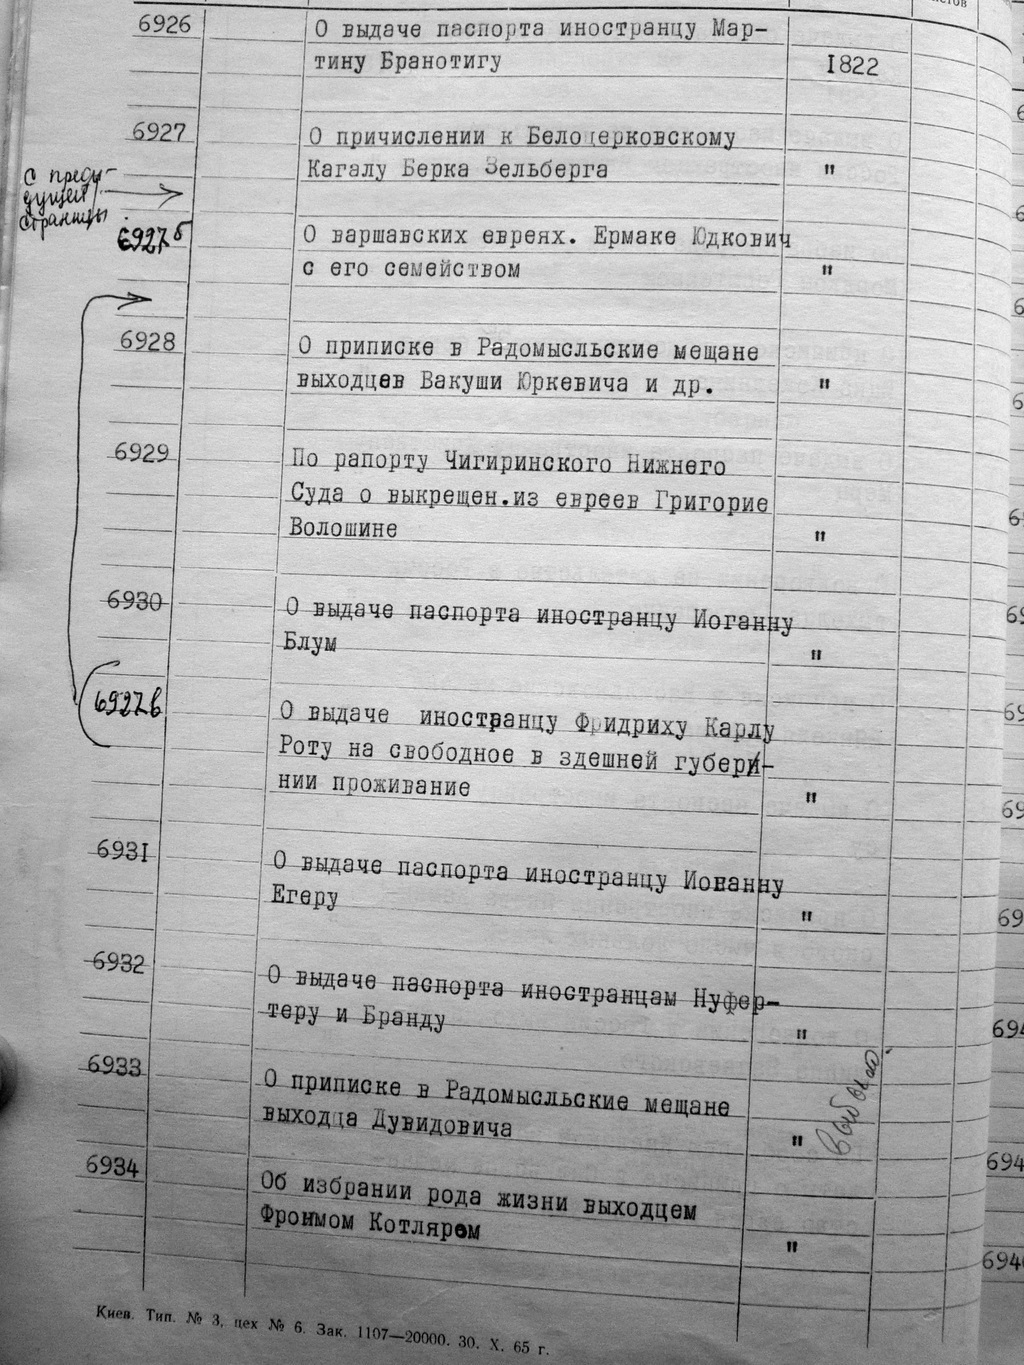 6926 О выдаче паспорта иностранцу Мар-
тину Бранотигу 1822
6927 О причислении к Белоцерковскому
Кагалу Берка Зельберга "
с преды-
дущей
страницы
6927б О варшавских евреях. Ермаке Юдкович
с его семейством "
6928 О приписке в Радомысльские мещане
выходцев Вакуши Юркевича и др. "
6929 По рапорту Чигиринского Нижнего
Суда о выкрещен.из евреев Григорие
Волошине "
6930 О выдаче паспорта иностранцу Иоганну
Блум "
6927в О выдаче иностранцу Фридриху Карлу
Роту на свободное в здешней губер-
нии проживание "
6931 О выдаче паспорта иностранцу Иоганну
Егеру "
6932 О выдаче паспорта иностранцам Нуфер-
теру и Бранду "
6933 О приписке в Радомысльские мещане
выходца Дувидовича "
выбыло
6934 Об избрании рода жизни выходцем
Фроимом Котляром "
Киев. Тип. № 3, цех № 6. Зак. 1107—20000. 30. X. 65 г.